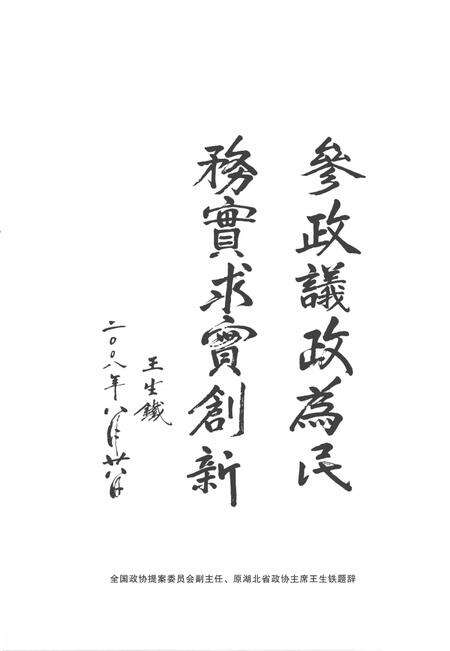 參政議政為民
務實求實創新
王生鐵
二〇〇八年八月廿八日
全国政协提案委员会副主任、原湖北省政协主席王生铁题辞